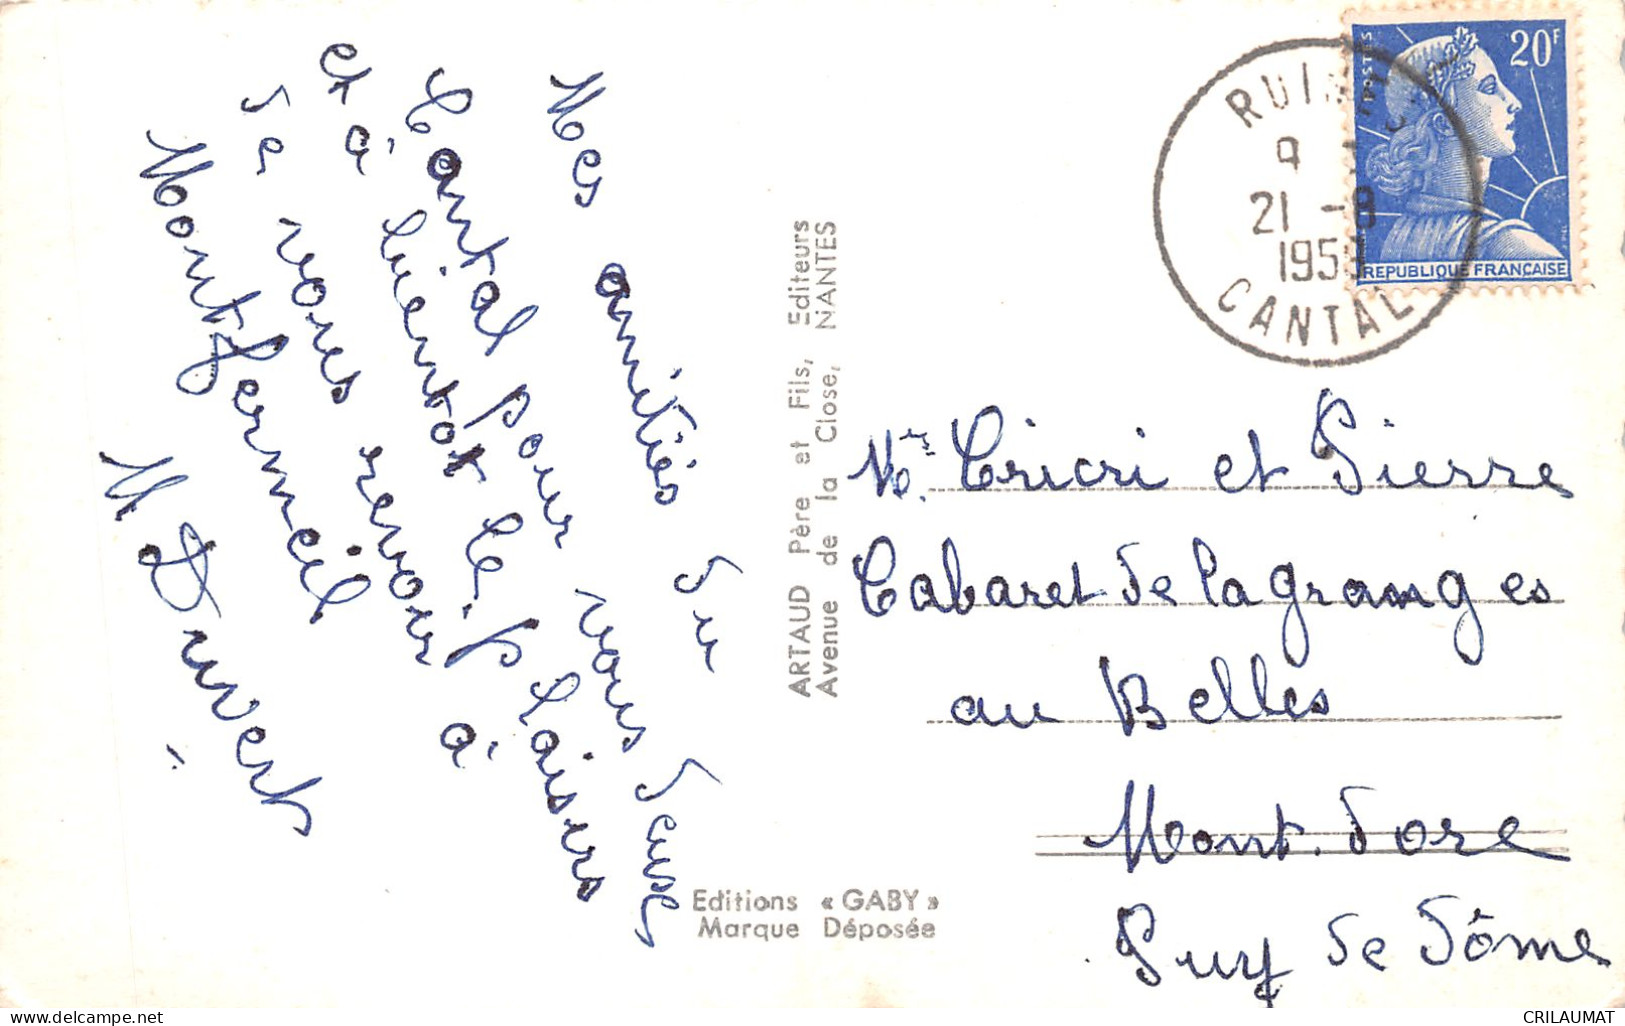 Mes amitiés du
Cantal pour vous deux
et à bientôt le plaisir
de vous revoir à
Montfermeil
M Duvert
ARTAUD Père et Fils, Editeurs
Avenue de la Close, NANTES
Editions « GABY »
Marque Déposée
CANTAL
21 -8
POSTES
20F
REPUBLIQUE FRANÇAISE
Mrs Cricri et Pierre
Cabaret de la granges
au Belles
Mont. Dore
Puy de Dôme
CRILAUMAT